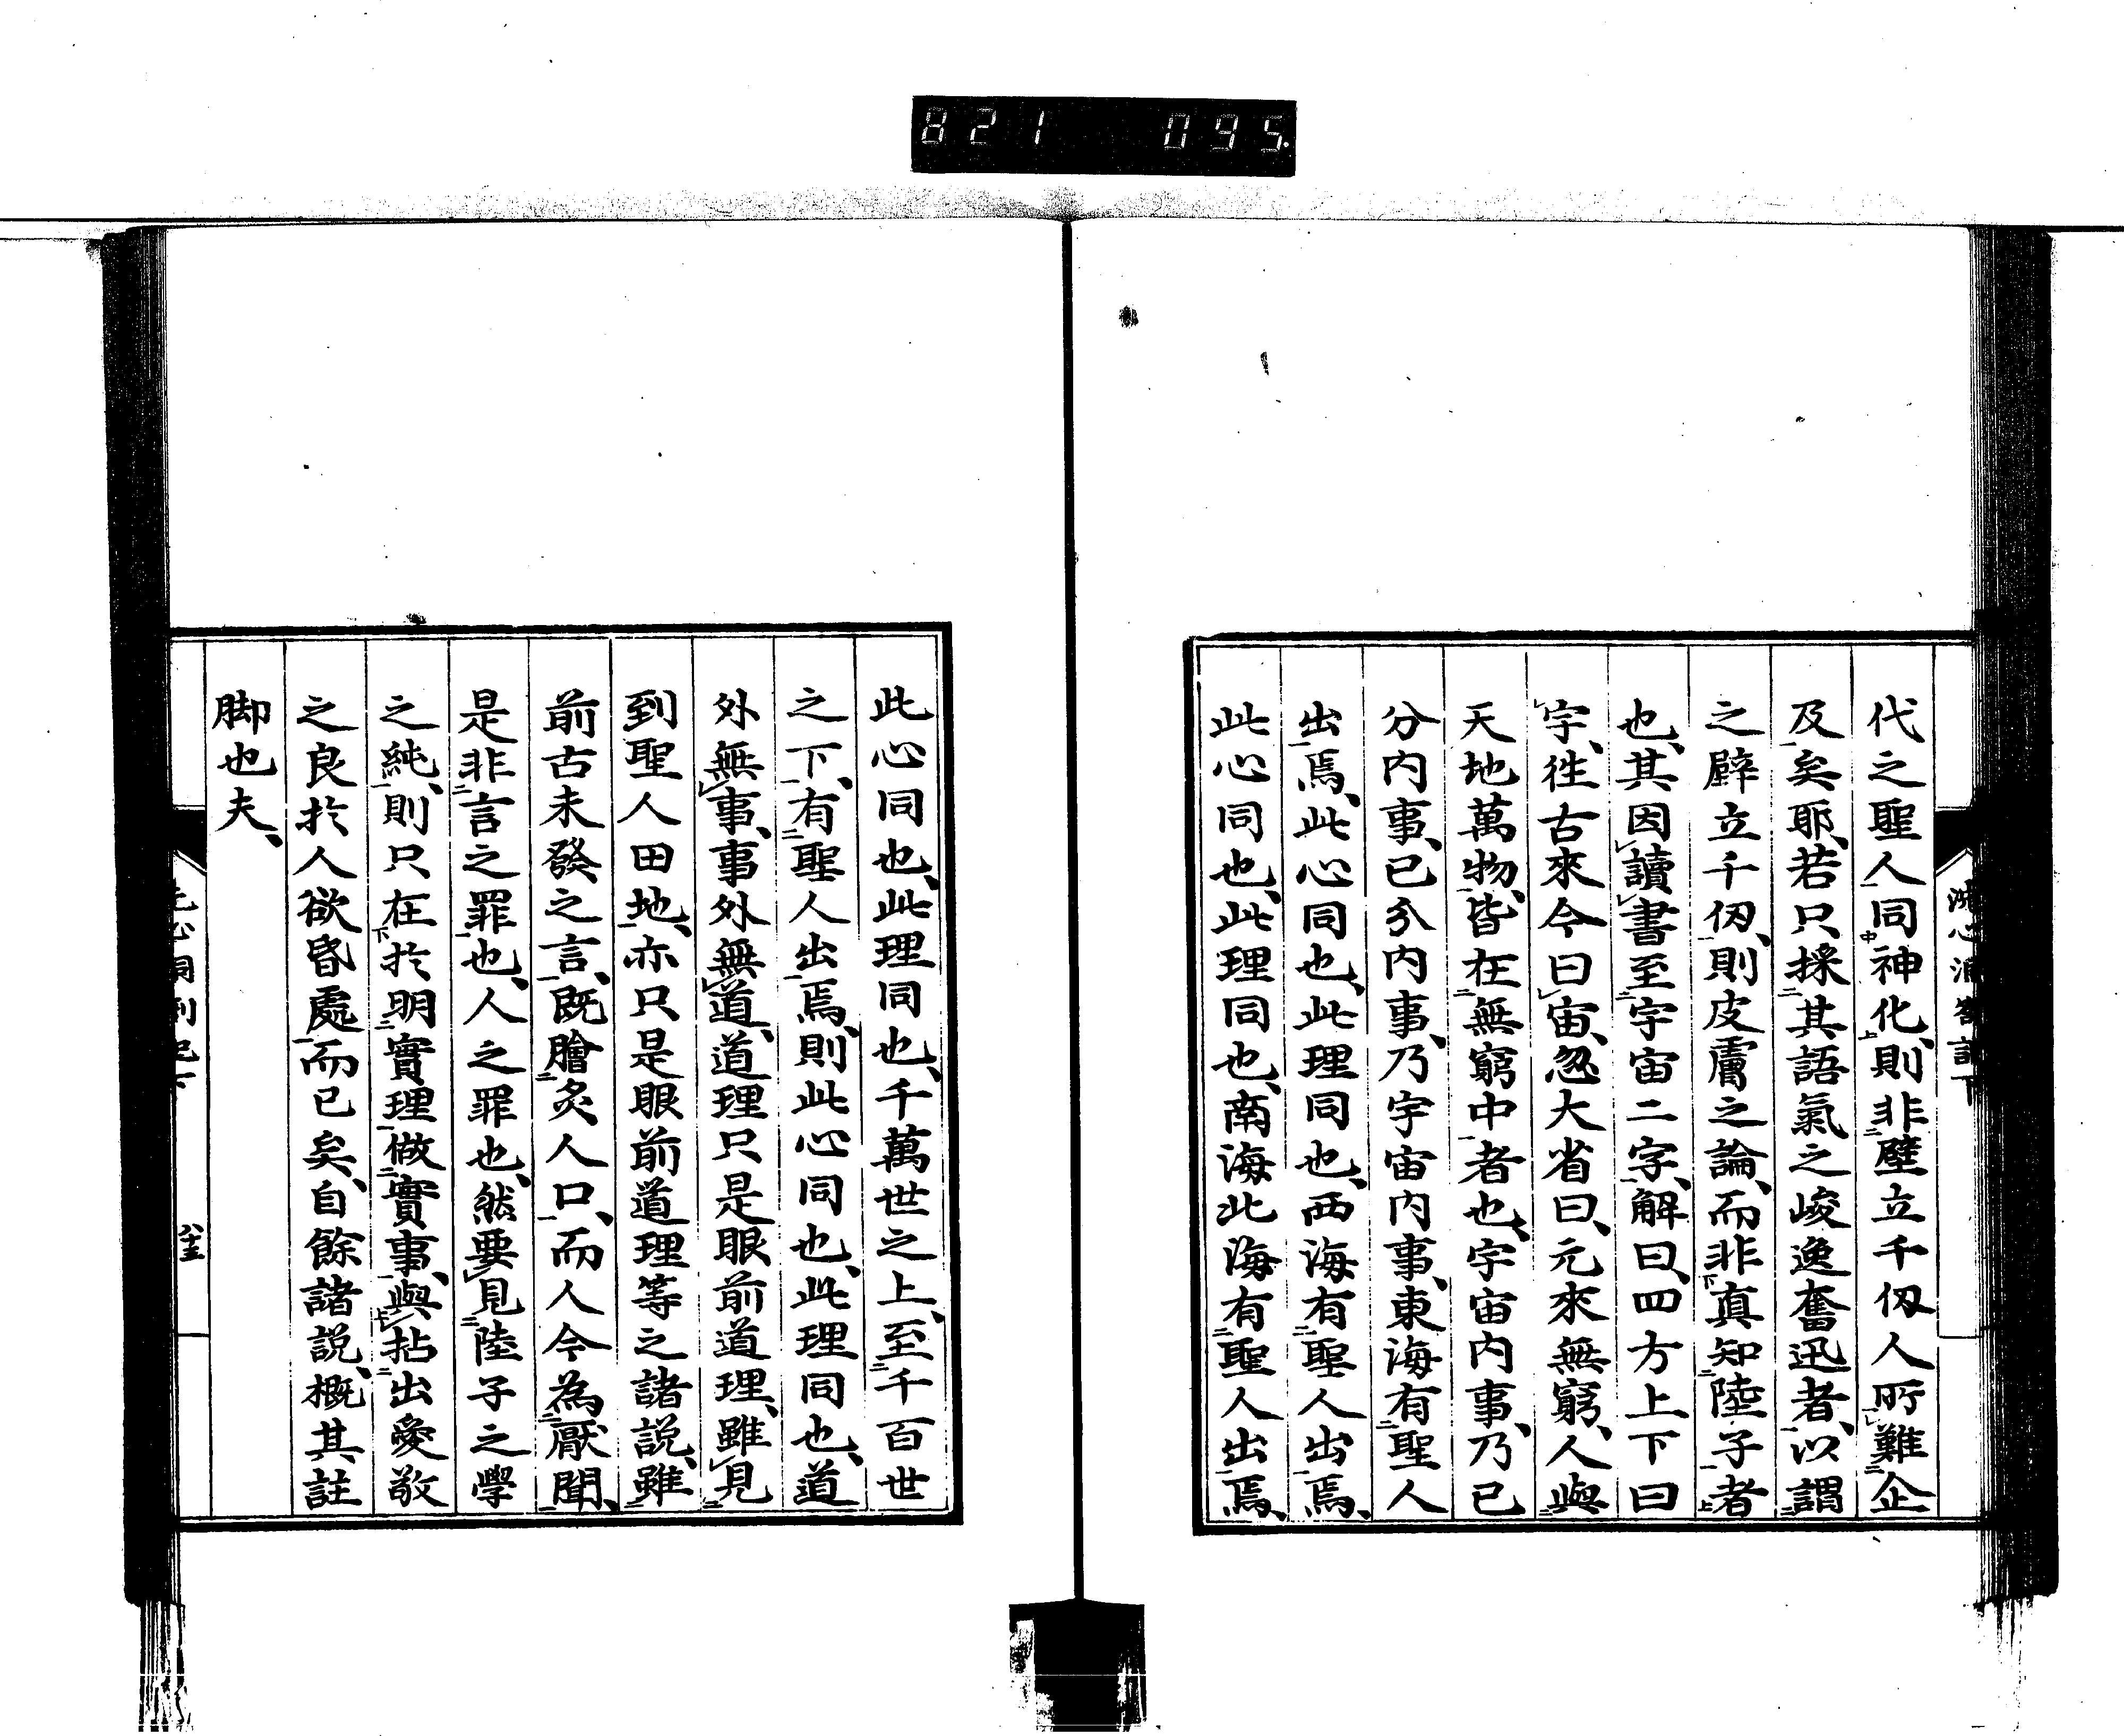 821 095
代之聖人同神化、則非壁立千仭人所難企
及矣耶、若只採其語氣之峻逸奮迅者、以謂
之壁立千仭、則皮膚之論、而非真知陸子者
也、其因讀書至宇宙二字、解曰、四方上下曰
宇、徃古來今曰宙、忽大省曰、元來無窮、人與
天地萬物、皆在無窮中者也、宇宙内事、乃己
分内事、已分内事、乃宇宙内事、東海有聖人
出焉、此心同也、此理同也、西海有聖人出焉、
此心同也、此理同也、南海北海有聖人出焉、
此心同也、此理同也、千萬世之上、至千百世
之下、有聖人出焉、則此心同也、此理同也、道
外無事、事外無道、道理只是眼前道理、雖見
到聖人田地、亦只是眼前道理等之諸説、雖
前古未發之言、既膾炙人口、而人今為厭聞、
是非言之罪也、人之罪也、然要見陸子之學
之純、則只在於明實理做實事、與拈出愛敬
之良於人欲昏處而已矣、自餘諸説、概其註
脚也夫、
洗心洞劄記下